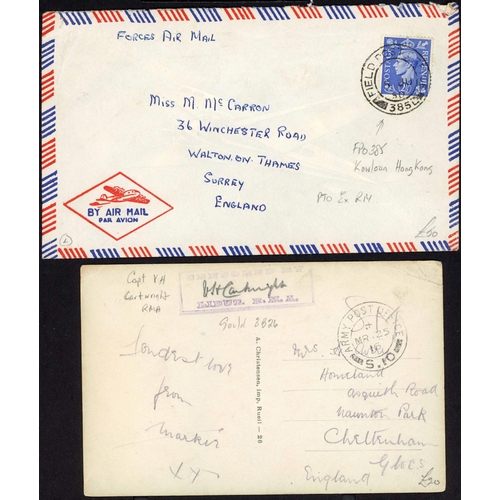 FORCES AIR MAIL
POSTAGE REVENUE
FIELD
385
MISS M. MCCARRON
36 WINCHESTER ROAD
WALTON-ON-THAMES
SURREY
ENGLAND
FPO 385
Kowloon Hong Kong
PTO Ex RM
£20
BY AIR MAIL
PAR AVION
Capt VH
Cartwright
RMA
VHCartwright
Gould 3B26
ARMY POST OFFICE
MR 25
16
S.10
A. Christensen, imp. Rueil - 20
Fondest love
from
Markie
XX
Mrs.
Homeland
Asquith Road
Naunton Park
Cheltenham
Glos
England
£20